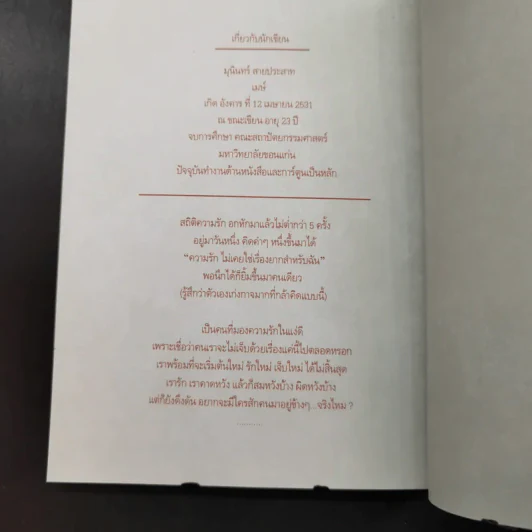 เกี่ยวกับนักเขียน
มุนินทร์ สายประสาท
เมษ์
เกิด อังคาร ที่ 12 เมษายน 2531
ณ ขณะเขียน อายุ 23 ปี
จบการศึกษา คณะสถาปัตยกรรมศาสตร์
มหาวิทยาลัยขอนแก่น
ปัจจุบันทำงานด้านหนังสือและการ์ตูนเป็นหลัก
สถิติความรัก อกหักมาแล้วไม่ต่ำกว่า 5 ครั้ง
อยู่มาวันหนึ่ง คิดคำๆ หนึ่งขึ้นมาได้
“ความรัก ไม่เคยใช่เรื่องยากสำหรับฉัน”
พอนึกได้ก็ยิ้มขึ้นมาคนเดียว
(รู้สึกว่าตัวเองเก่งกาจมากที่กล้าคิดแบบนี้)
เป็นคนที่มองความรักในแง่ดี
เพราะเชื่อว่าคนเราจะไม่เจ็บด้วยเรื่องแค่นี้ไปตลอดหรอก
เราพร้อมที่จะเริ่มต้นใหม่ รักใหม่ เจ็บใหม่ ได้ไม่สิ้นสุด
เรารัก เราคาดหวัง แล้วก็สมหวังบ้าง ผิดหวังบ้าง
แต่ก็ยังดึงดัน อยากจะมีใครสักคนมาอยู่ข้างๆ...จริงไหม ?